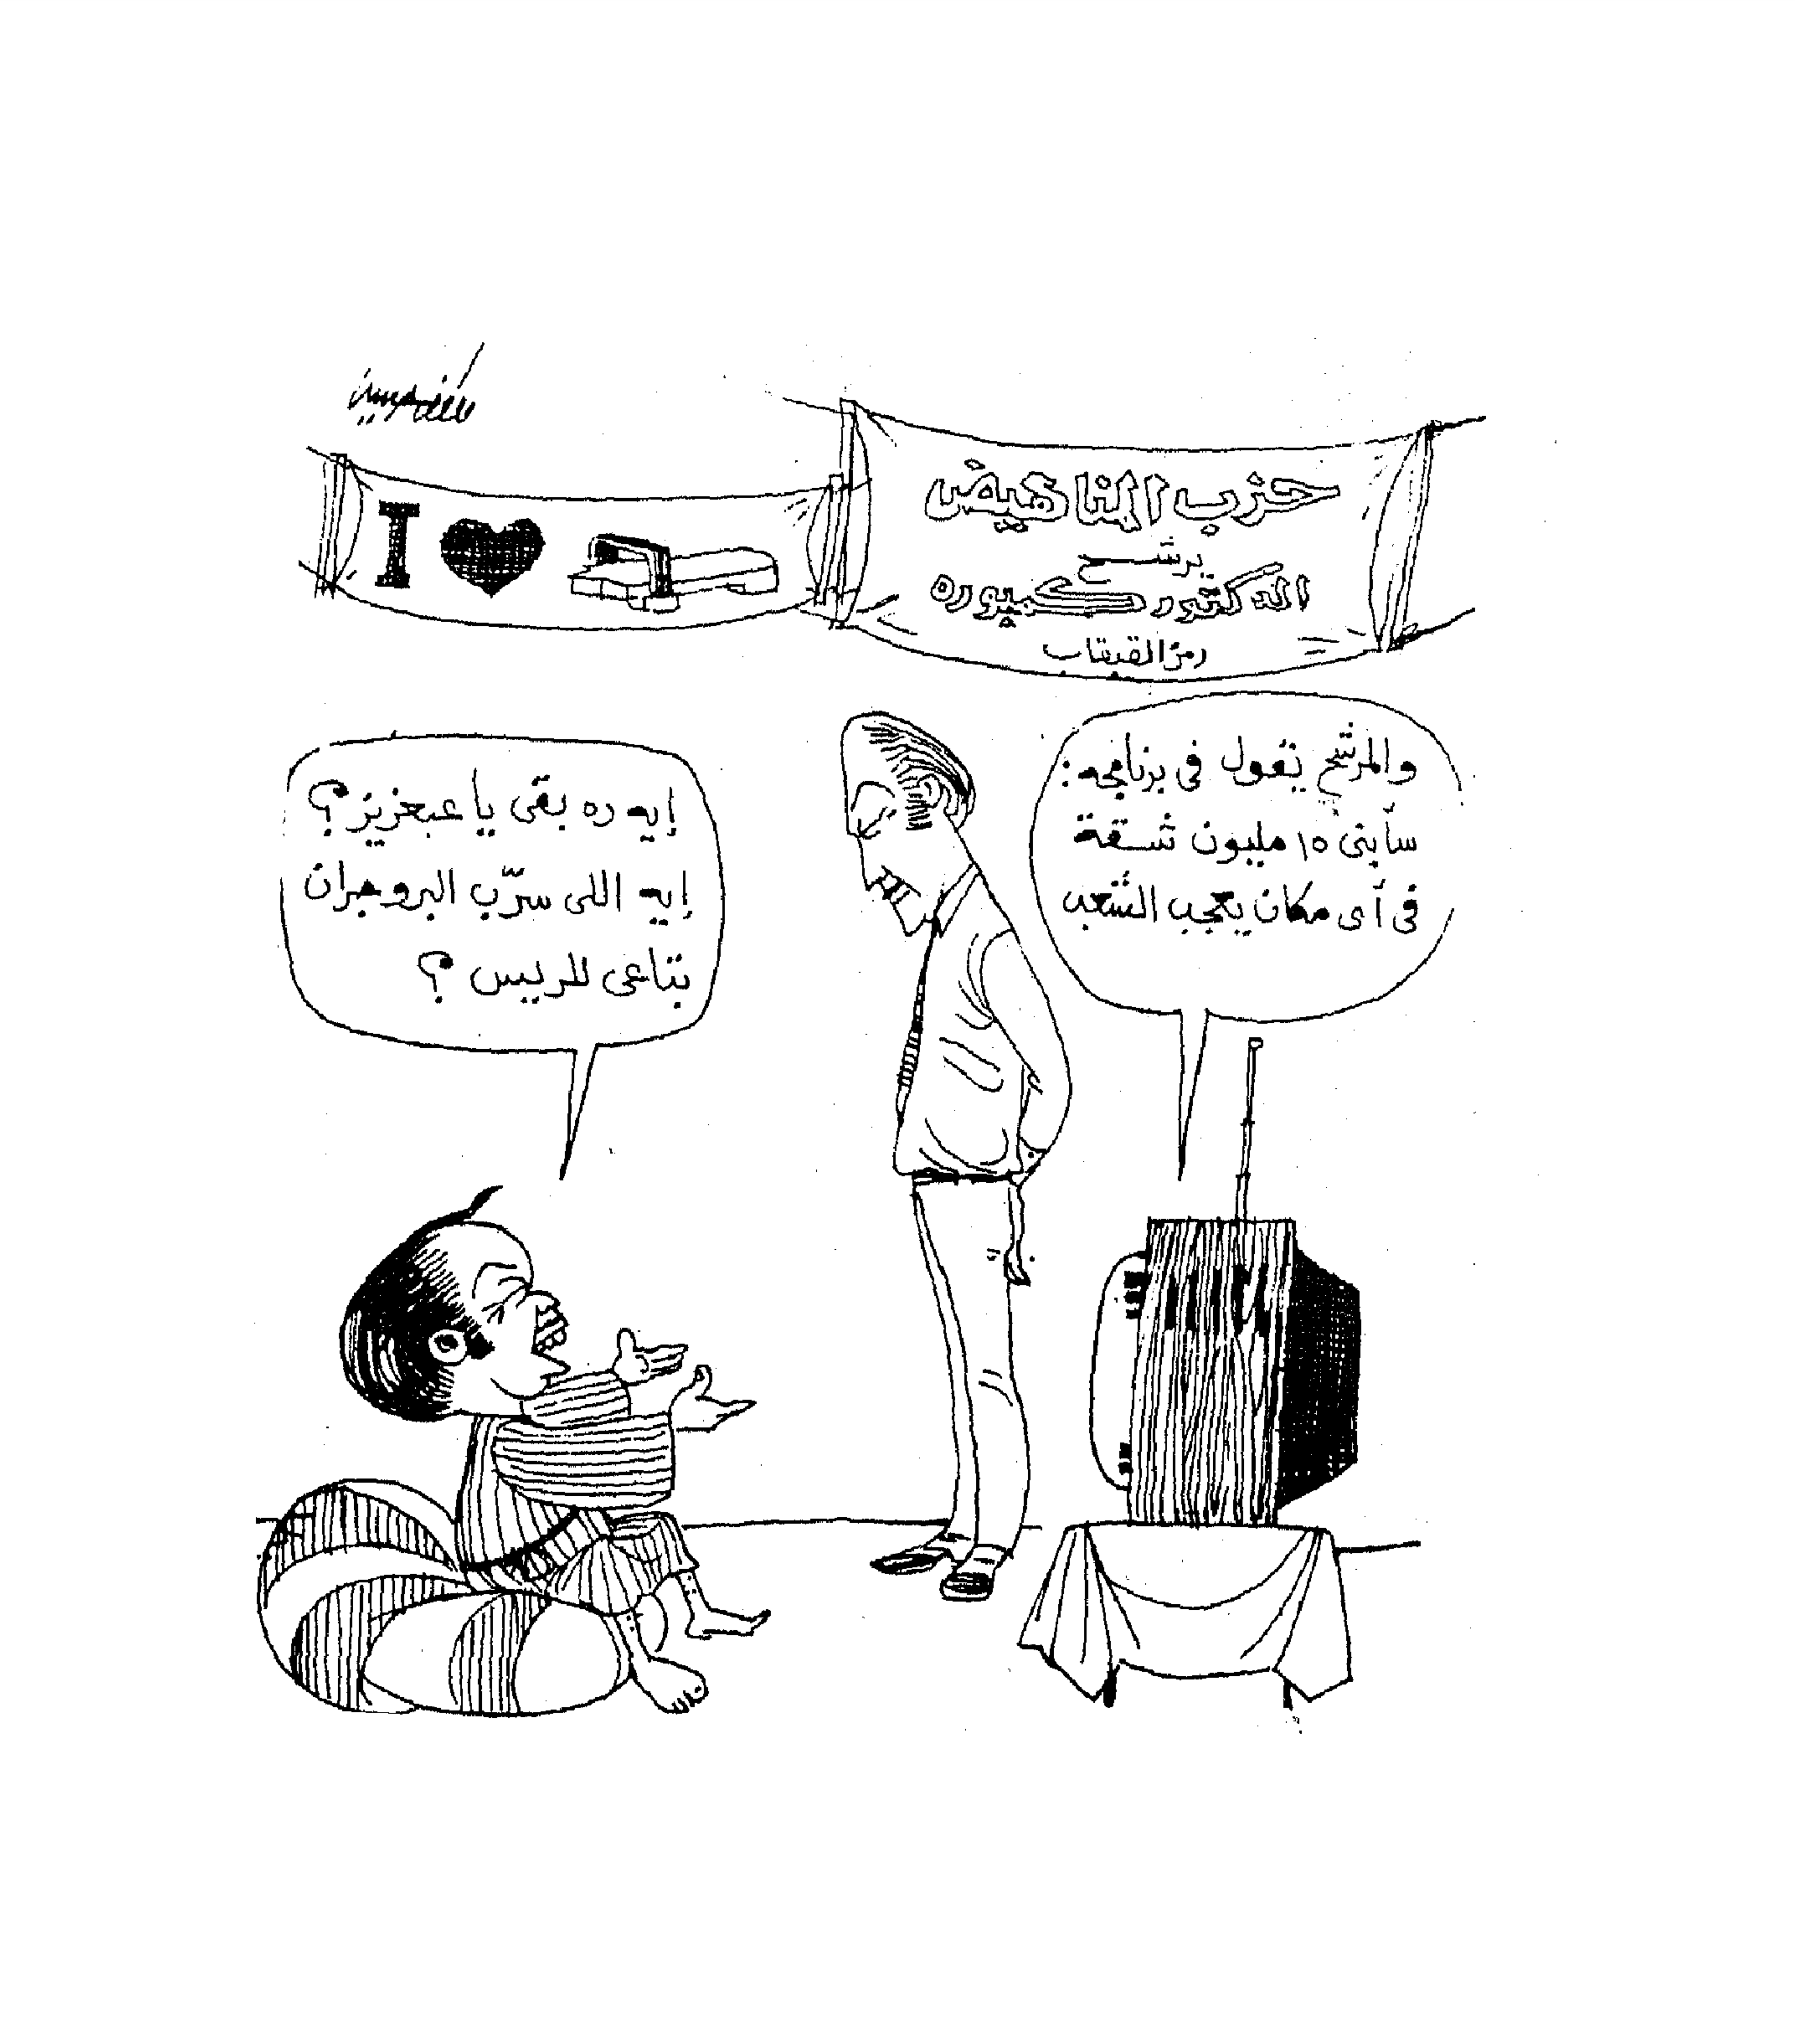 حزب المناهيض
يرشح
الدكتور كمبوره
رمز القبقاب
I
والمرشح يقول في برنامجه:
سأبنى ١٥ مليون شقة
فى أى مكان يعجب الشعب
إيه ده بقى يا عبعزيز؟
إيه اللى سرّب البروجرام
بتاعى للريس؟